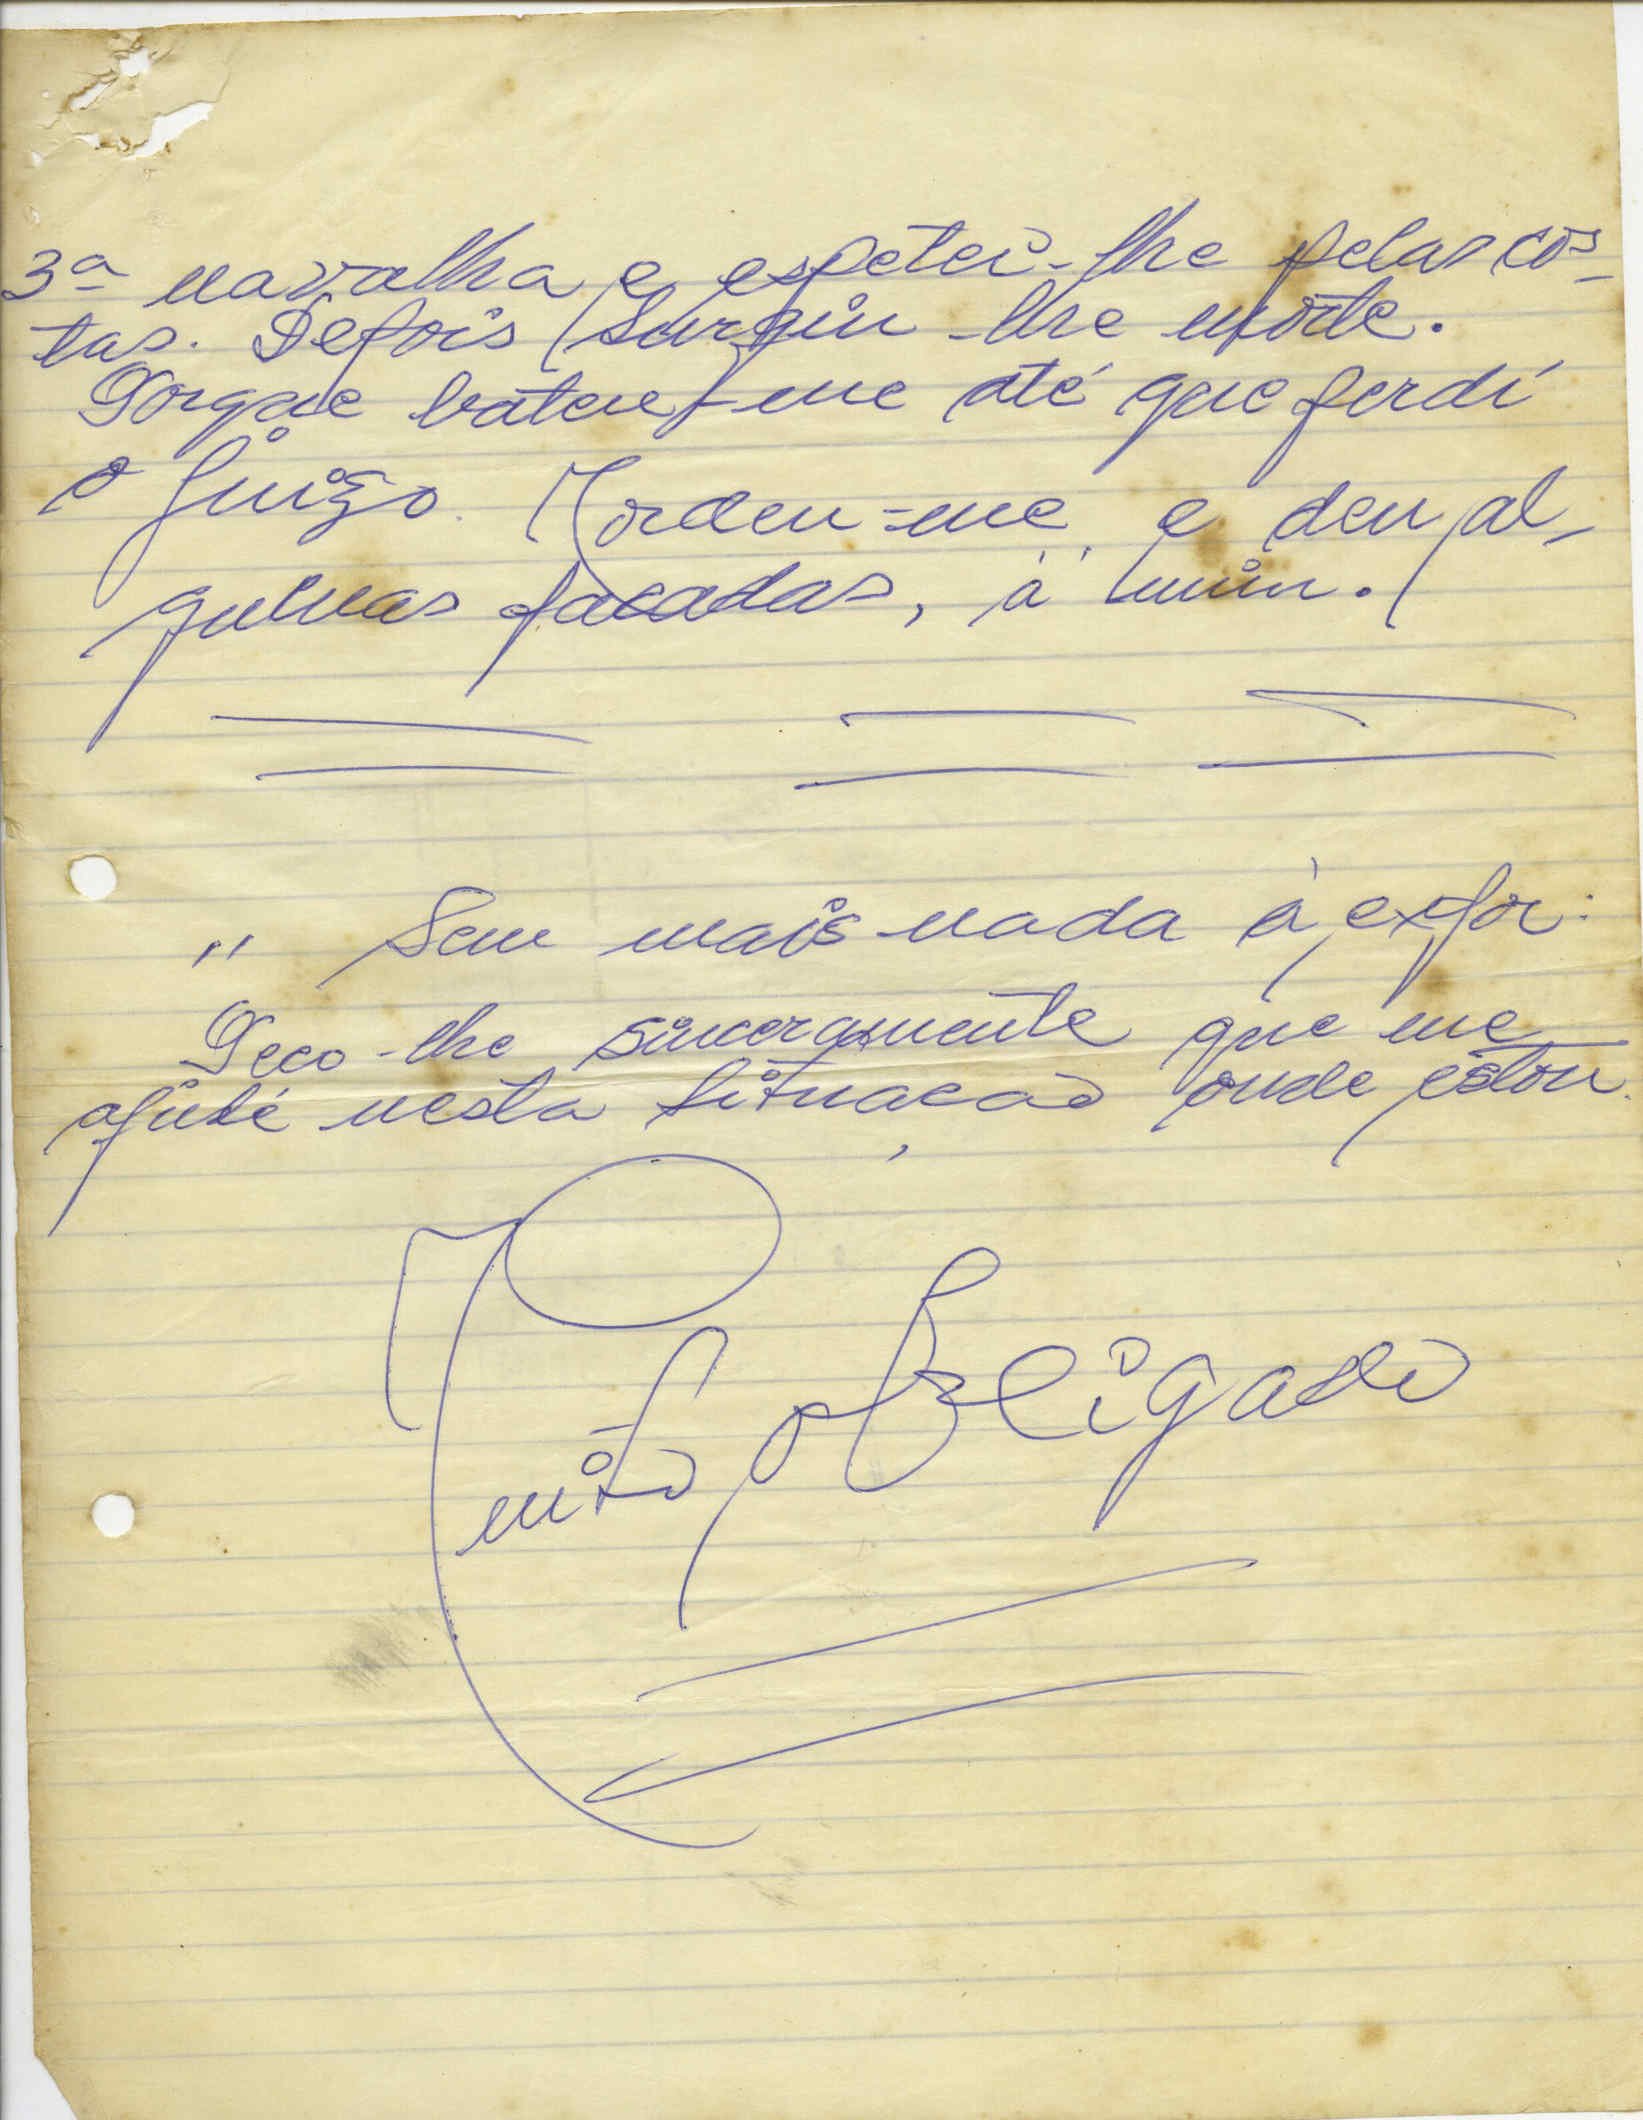 3ª navalha e espetei-lhe pelas cos-
tas. Depois surgiu-lhe morte.
Porque bateu-me até que perdí
o juizo. Mordeu-me e deu al-
gumas facadas, à mim.
" Sem mais nada à expor:
Peço-lhe sinceramente que me
ajudé nesta situacão onde estou.
Muito obrigado